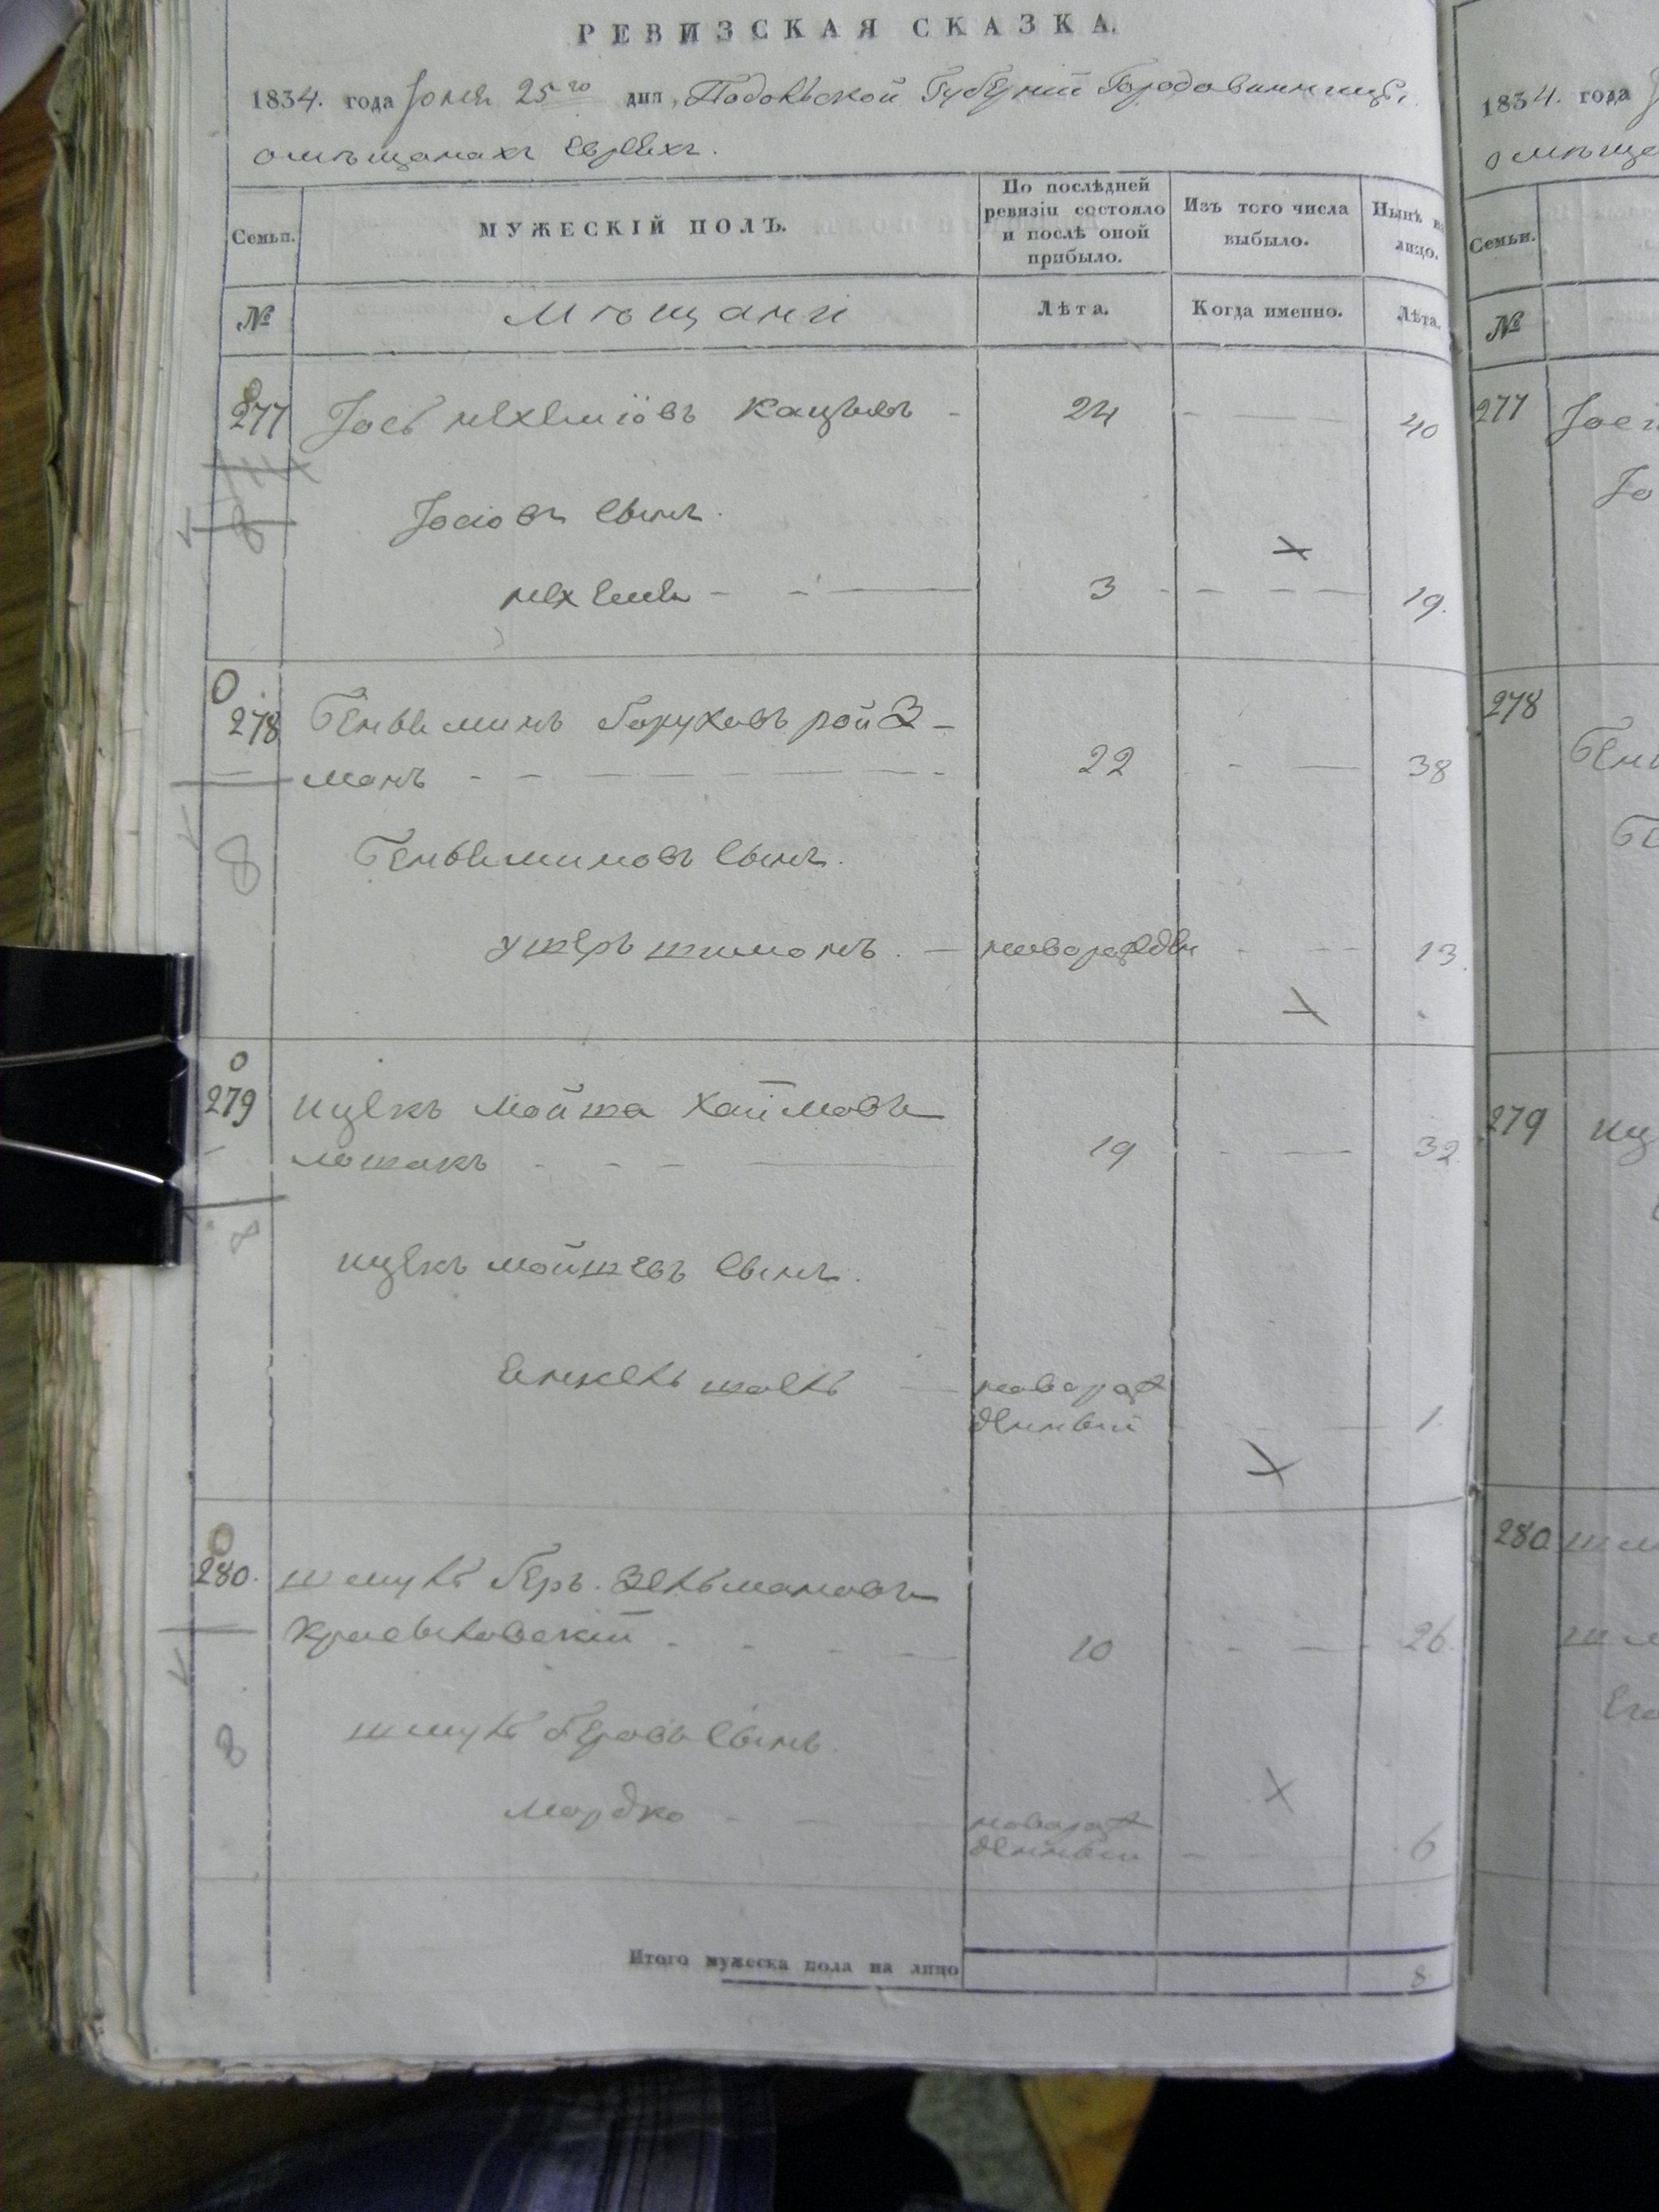 РЕВИЗСКАЯ СКАЗКА.
1834. года Іюня 25го дня, Подольской Губерніи Города Винницы
о мѣщанахъ Евреяхъ.
Семьи. МУЖЕСКІЙ ПОЛЪ. По послѣдней ревизіи состояло и послѣ оной прибыло. Изъ того числа выбыло. Нынѣ на лицо.
№ Мѣщане Лѣта. Когда именно. Лѣта.
277 Іось Нехеміовъ Кацывъ 24 40
Іосіовъ Сынъ.
Нехемія 3 19.
278 Беньяминъ Боруховъ Ройз-
манъ 22 38
Беньяминовъ Сынъ.
Ушеръ Шимонъ новорожден 13.
279 Ицекъ Мойша Хаймовъ
Лошакъ 19 32.
Ицекъ Мойшевъ Сынъ.
новорож
денный 1.
280. Шмуль Беръ Зельмановъ
10 26.
Шмуль Беровъ Сынъ
Мордко новорож
денный 6
Итого мужеска пола на лицо 8
1834. года
о мѣща
Семьи.
№
277 Іос
Іо
278
Бень
Бе
279 Иц
280 Шм
Шм
Его